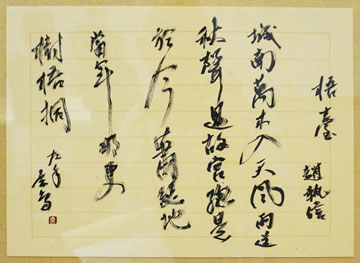 梧臺
趙執信
城南萬木入天風雨送
秋聲過故宮總是
於今蕭瑟地
當年那更
樹梧桐
左手